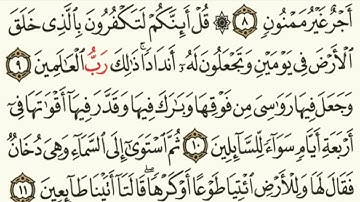 أَجْرٌ غَيْرُ مَمْنُونٍ ٨ ۞ قُلْ أَئِنَّكُمْ لَتَكْفُرُونَ بِالَّذِى خَلَقَ
الْأَرْضَ فِى يَوْمَيْنِ وَتَجْعَلُونَ لَهُۥ أَندَادًا ۚ ذَٰلِكَ رَبُّ الْعَالَمِينَ ٩
وَجَعَلَ فِيهَا رَوَاسِىَ مِن فَوْقِهَا وَبَارَكَ فِيهَا وَقَدَّرَ فِيهَا أَقْوَاتَهَا فِى
أَرْبَعَةِ أَيَّامٍ سَوَاءً لِّلسَّائِلِينَ ١٠ ثُمَّ اسْتَوَىٰ إِلَى السَّمَاءِ وَهِىَ دُخَانٌ
فَقَالَ لَهَا وَلِلْأَرْضِ ائْتِيَا طَوْعًا أَوْ كَرْهًا ۖ قَالَتَا أَتَيْنَا طَائِعِينَ ١١